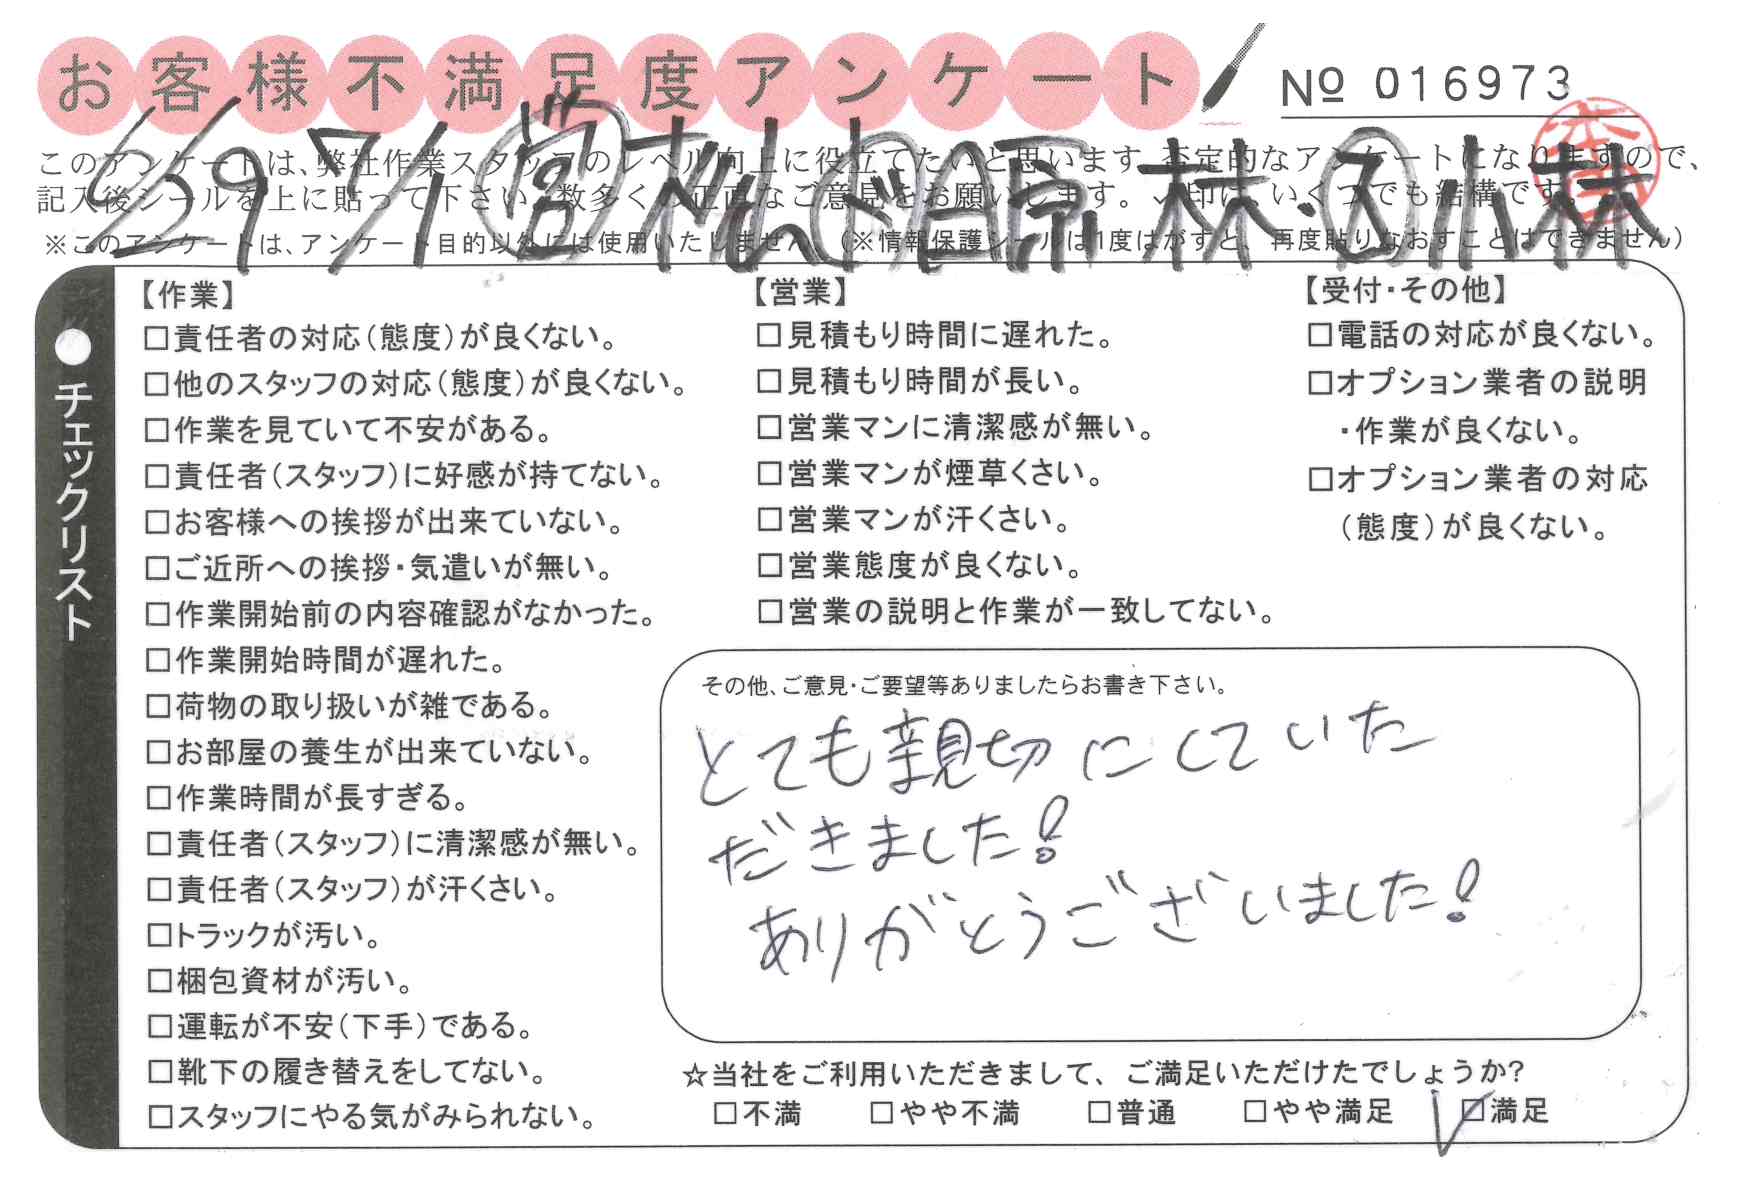 お客様不満足度アンケート
№ 016973
6/29 7/1 営 松下 原 林・小林
このアンケートは、弊社作業スタッフのレベル向上に役立てたいと思います。否定的なアンケートになりますので、
記入後シールを上に貼って下さい。数多くの正直なご意見をお願いします。✓印は、いくつでも結構です。
※このアンケートは、アンケート目的以外には使用いたしません。(※情報保護シールは1度はがすと、再度貼りなおすことはできません)
●チェックリスト
【作業】
□責任者の対応(態度)が良くない。
□他のスタッフの対応(態度)が良くない。
□作業を見ていて不安がある。
□責任者(スタッフ)に好感が持てない。
□お客様への挨拶が出来ていない。
□ご近所への挨拶・気遣いが無い。
□作業開始前の内容確認がなかった。
□作業開始時間が遅れた。
□荷物の取り扱いが雑である。
□お部屋の養生が出来ていない。
□作業時間が長すぎる。
□責任者(スタッフ)に清潔感が無い。
□責任者(スタッフ)が汗くさい。
□トラックが汚い。
□梱包資材が汚い。
□運転が不安(下手)である。
□靴下の履き替えをしてない。
□スタッフにやる気がみられない。
【営業】
□見積もり時間に遅れた。
□見積もり時間が長い。
□営業マンに清潔感が無い。
□営業マンが煙草くさい。
□営業マンが汗くさい。
□営業態度が良くない。
□営業の説明と作業が一致してない。
【受付・その他】
□電話の対応が良くない。
□オプション業者の説明
・作業が良くない。
□オプション業者の対応
(態度)が良くない。
その他、ご意見・ご要望等ありましたらお書き下さい。
とても親切にしていた
だきました!
ありがとうございました!
☆当社をご利用いただきまして、ご満足いただけたでしょうか?
□不満 □やや不満 □普通 □やや満足 ☑満足